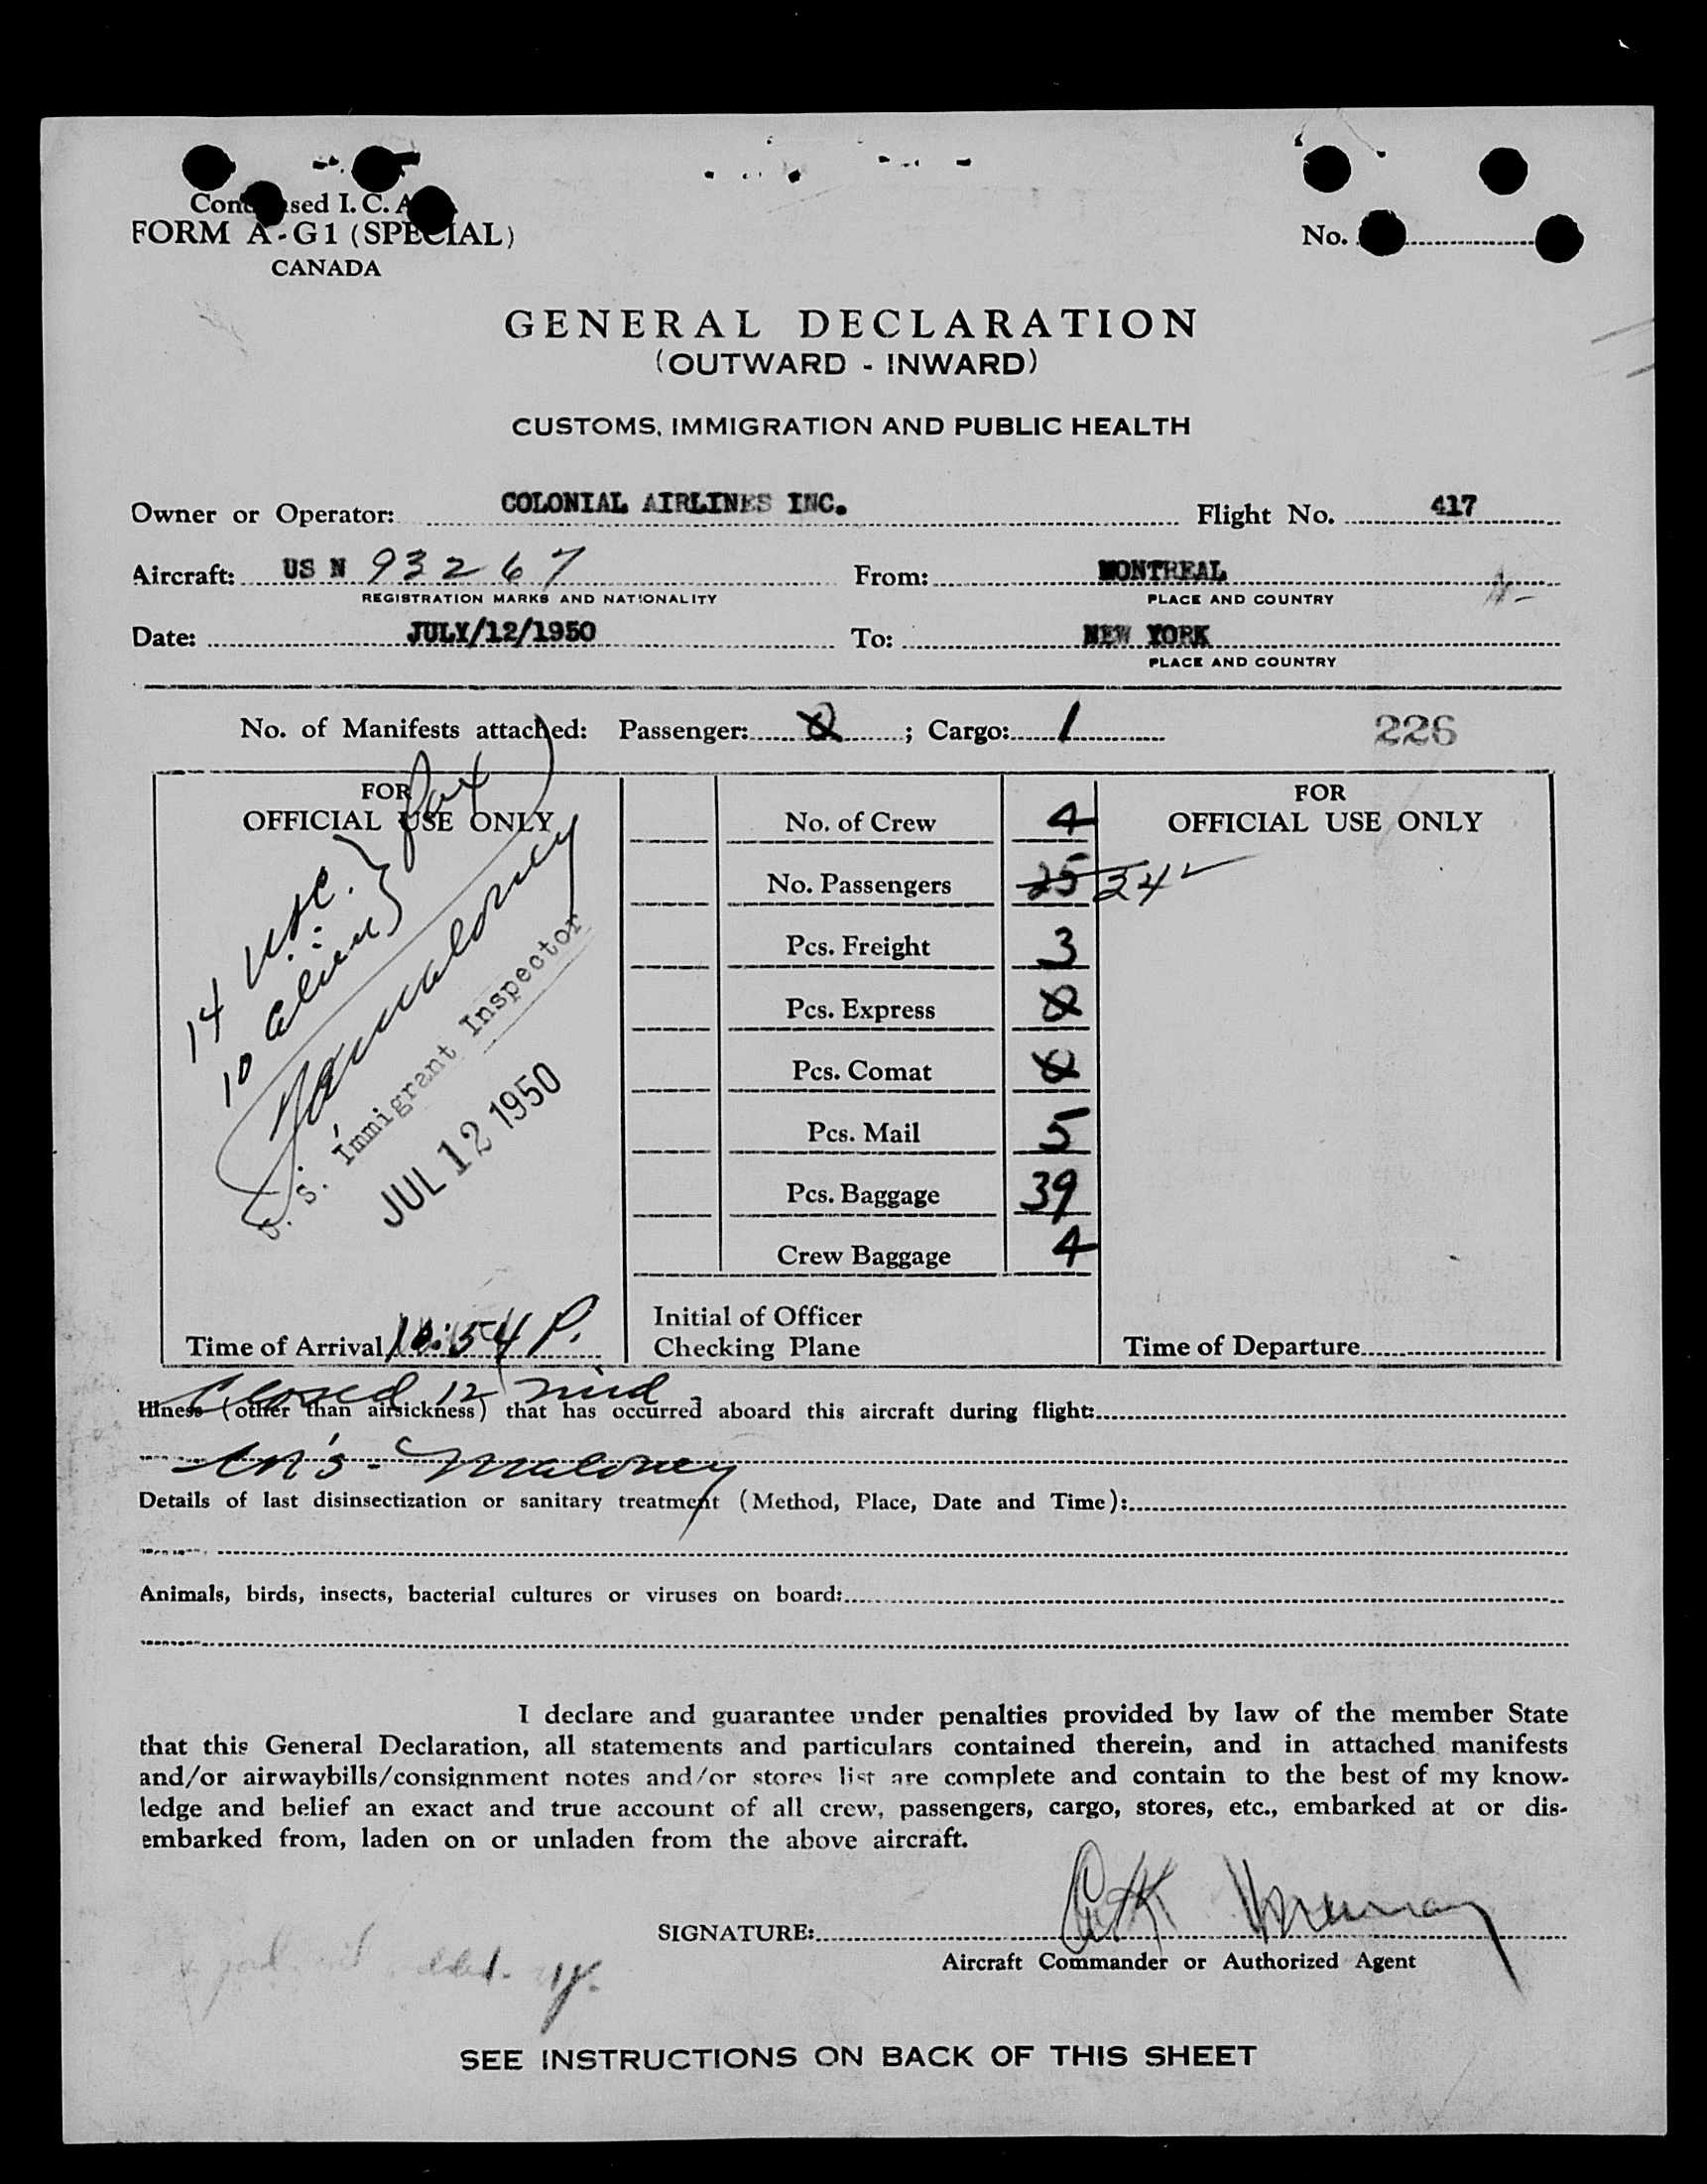 Condensed I. C. A.
FORM A-G1 (SPECIAL)
CANADA
No.
GENERAL DECLARATION
(OUTWARD - INWARD)
CUSTOMS, IMMIGRATION AND PUBLIC HEALTH
Owner or Operator: COLONIAL AIRLINES INC. Flight No. 417
Aircraft: US N 93267 From: MONTREAL
REGISTRATION MARKS AND NATIONALITY PLACE AND COUNTRY
Date: JULY/12/1950 To: NEW YORK
PLACE AND COUNTRY
No. of Manifests attached: Passenger: 0 ; Cargo: 1
226
FOR
OFFICIAL USE ONLY
14 USC. } Pax
10 Aliens
Maloney
U. S. Immigrant Inspector
JUL 12 1950
Time of Arrival 10:54 P.
No. of Crew 4
No. Passengers 25 24
Pcs. Freight 3
Pcs. Express 0
Pcs. Comat 0
Pcs. Mail 5
Pcs. Baggage 39
Crew Baggage 4
Initial of Officer
Checking Plane
FOR
OFFICIAL USE ONLY
Time of Departure
Closed 12 Mid
Illness (other than airsickness) that has occurred aboard this aircraft during flight:
Maloney
Details of last disinsectization or sanitary treatment (Method, Place, Date and Time):
Animals, birds, insects, bacterial cultures or viruses on board:
I declare and guarantee under penalties provided by law of the member State
that this General Declaration, all statements and particulars contained therein, and in attached manifests
and/or airwaybills/consignment notes and/or stores list are complete and contain to the best of my know-
ledge and belief an exact and true account of all crew, passengers, cargo, stores, etc., embarked at or dis-
embarked from, laden on or unladen from the above aircraft.
SIGNATURE:
Aircraft Commander or Authorized Agent
SEE INSTRUCTIONS ON BACK OF THIS SHEET